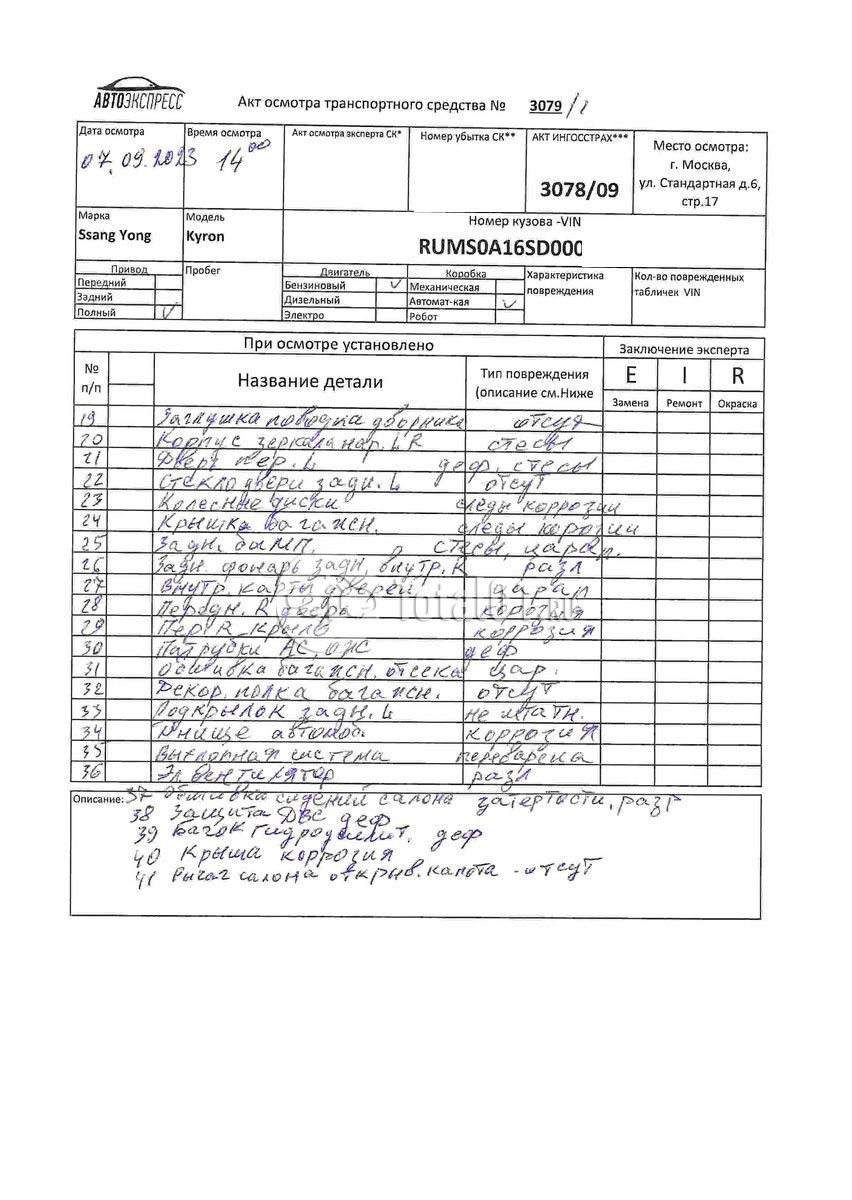 АВТОЭКСПРЕСС
Акт осмотра транспортного средства № 3079/1
Дата осмотра Время осмотра Акт осмотра эксперта СК* Номер убытка СК** АКТ ИНГОССТРАХ*** Место осмотра:
07.09.2023 14 00 3078/09 г. Москва,
ул. Стандартная д.6,
стр.17
Марка Модель Номер кузова -VIN
Ssang Yong Kyron RUMS0A16SD000
Привод Пробег Двигатель Коробка Характеристика Кол-во поврежденных
Передний Бензиновый V Механическая повреждения табличек VIN
Задний Дизельный Автомат-кая V
Полный V Электро Робот
При осмотре установлено Заключение эксперта
№ Название детали Тип повреждения E I R
п/п (описание см.Ниже Замена Ремонт Окраска
19 Заглушка поводка дворника отсут
20 Корпус зеркала нар. L R стесы
21 Дверь пер. L деф, стесы
22 Стекло двери задн. L отсут
23 Колесные диски следы коррозии
24 Крышка багажн. следы корозии
25 Задн. бамп. стесы, царап.
26 Задн фонарь задн, внутр. R разл
27 Внутр. карты дверей царап
28 Передн. R дверь корозия
29 Пер. R крыло коррозия
30 Патрубки АС, ОЖС деф
31 Обшивка багажн. отсека цар.
32 Декор. полка багажн. отсут
33 Подкрылок задн. L не штатн.
34 Днище автомоб. коррозия
35 Выхлопная система переварена
36 Эл вентилятор разл
Описание: 37 Обшивка сидений салона затертости, разр
38 Защита ДВС деф
39 Бачок Гидроусилит. деф
40 Крыша коррозия
41 Рычаг салона открыв. капота - отсут
Total .RU